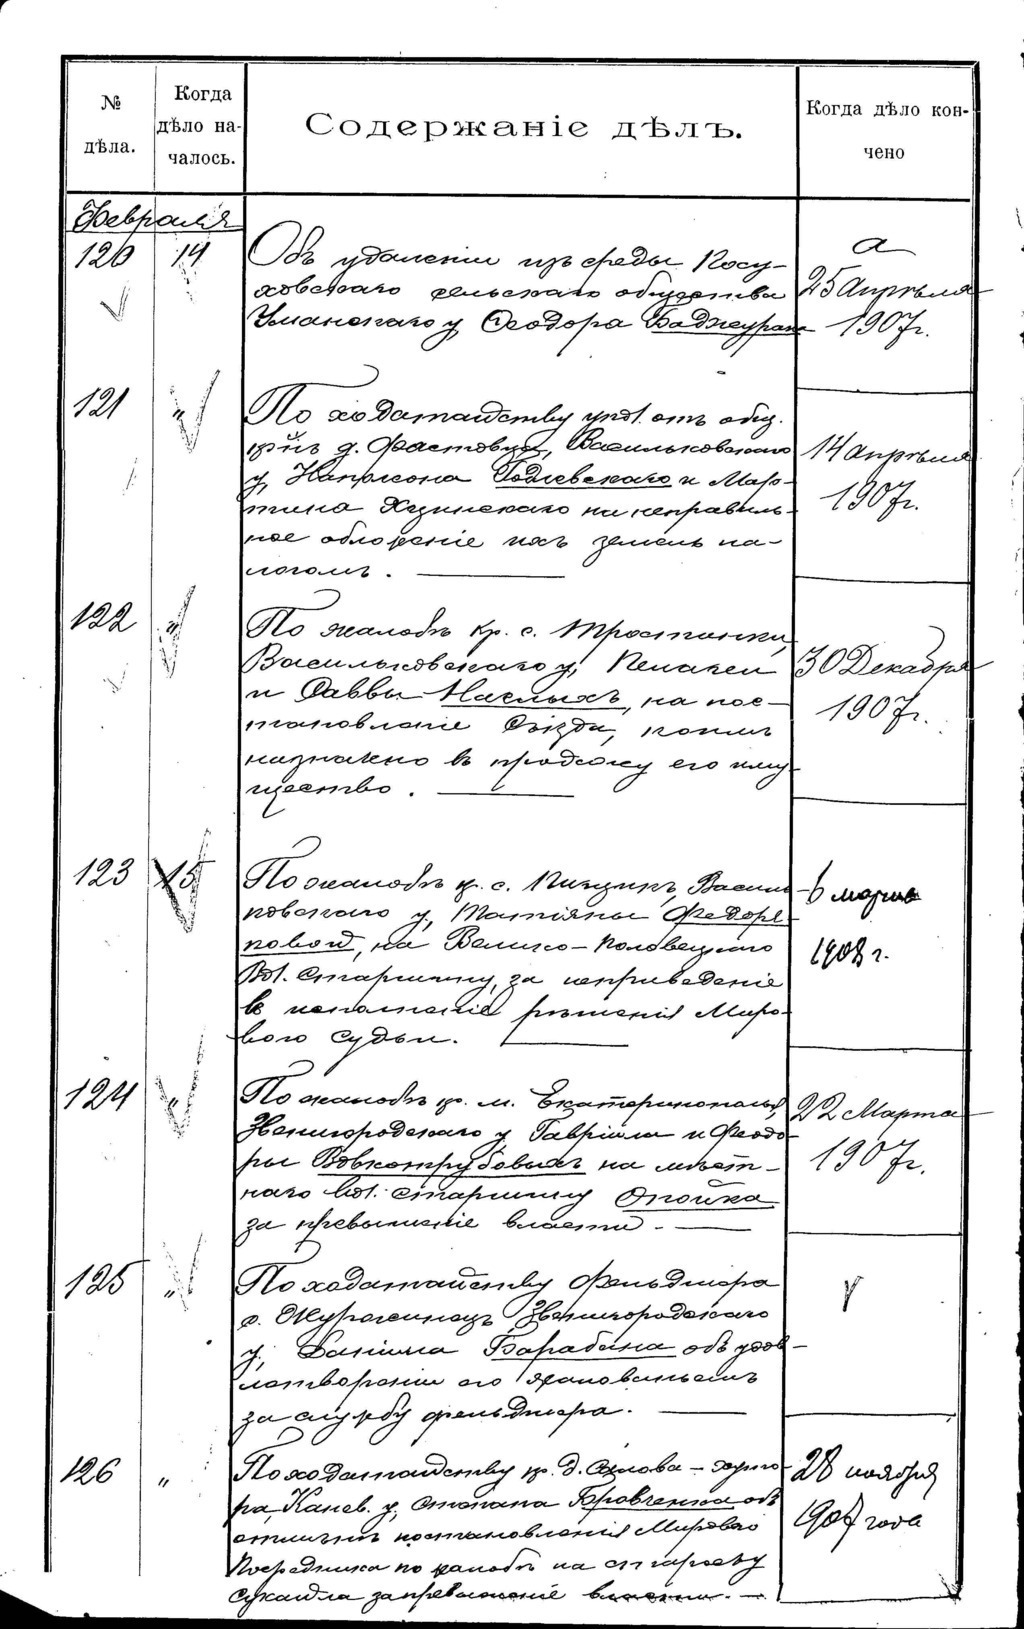 № дѣла.
Когда дѣло началось.
Содержаніе дѣлъ.
Когда дѣло кончено
Февраля
120 14
Объ удаленіи изъ среды Косу-
ховскаго сельскаго общества
Уманскаго у, Ѳеодора
а
25 Апрѣля
1907 г.
121 "
По ходатайству упол. отъ общ.
д. Фастовца, Васильковскаго
у, Наполеона Годлевскаго и Мар-
тина Хицинскаго на неправиль-
ное обложеніе ихъ земель на-
логомъ.
14 апрѣля
1907 г.
122 "
По жалобѣ кр. с. Тростинки,
Васильковскаго у, Пелагеи
и Саввы на пос-
тановленіе Съѣзда, коимъ
назначено въ продажу его иму-
щество.
30 Декабря
1907 г.
123 15
По жалобѣ кр. с. Пищикъ, Василь-
ковскаго у, Татіяны Федоря-
ковой, на Велико-Половецкаго
Вол. Старшину, за неприведеніе
въ исполненіе рѣшенія Миро-
вого Судьи.
6 марта
1908 г.
124 "
По жалобѣ кр. м. Екатеринополья,
Звенигородскаго у Гавріила и Ѳеодо-
ры Вовкотрубовыхъ на мѣст-
наго Вол. Старшину Опойка
за превышеніе власти.
22 Марта
1907 г.
125 "
По ходатайству Фельдшера
с. Журжинецъ Звенигородскаго
у, Даніила Барабана объ удов-
летвореніи его жалованьемъ
за службу фельдшера.
126 "
По ходатайству кр. д. хуто-
ра, Канев. у, Степана Бровченка объ
отмѣнѣ постановленія Мирового
Посредника по жалобѣ на старосту
за превышеніе власти.
28 ноября
1907 года